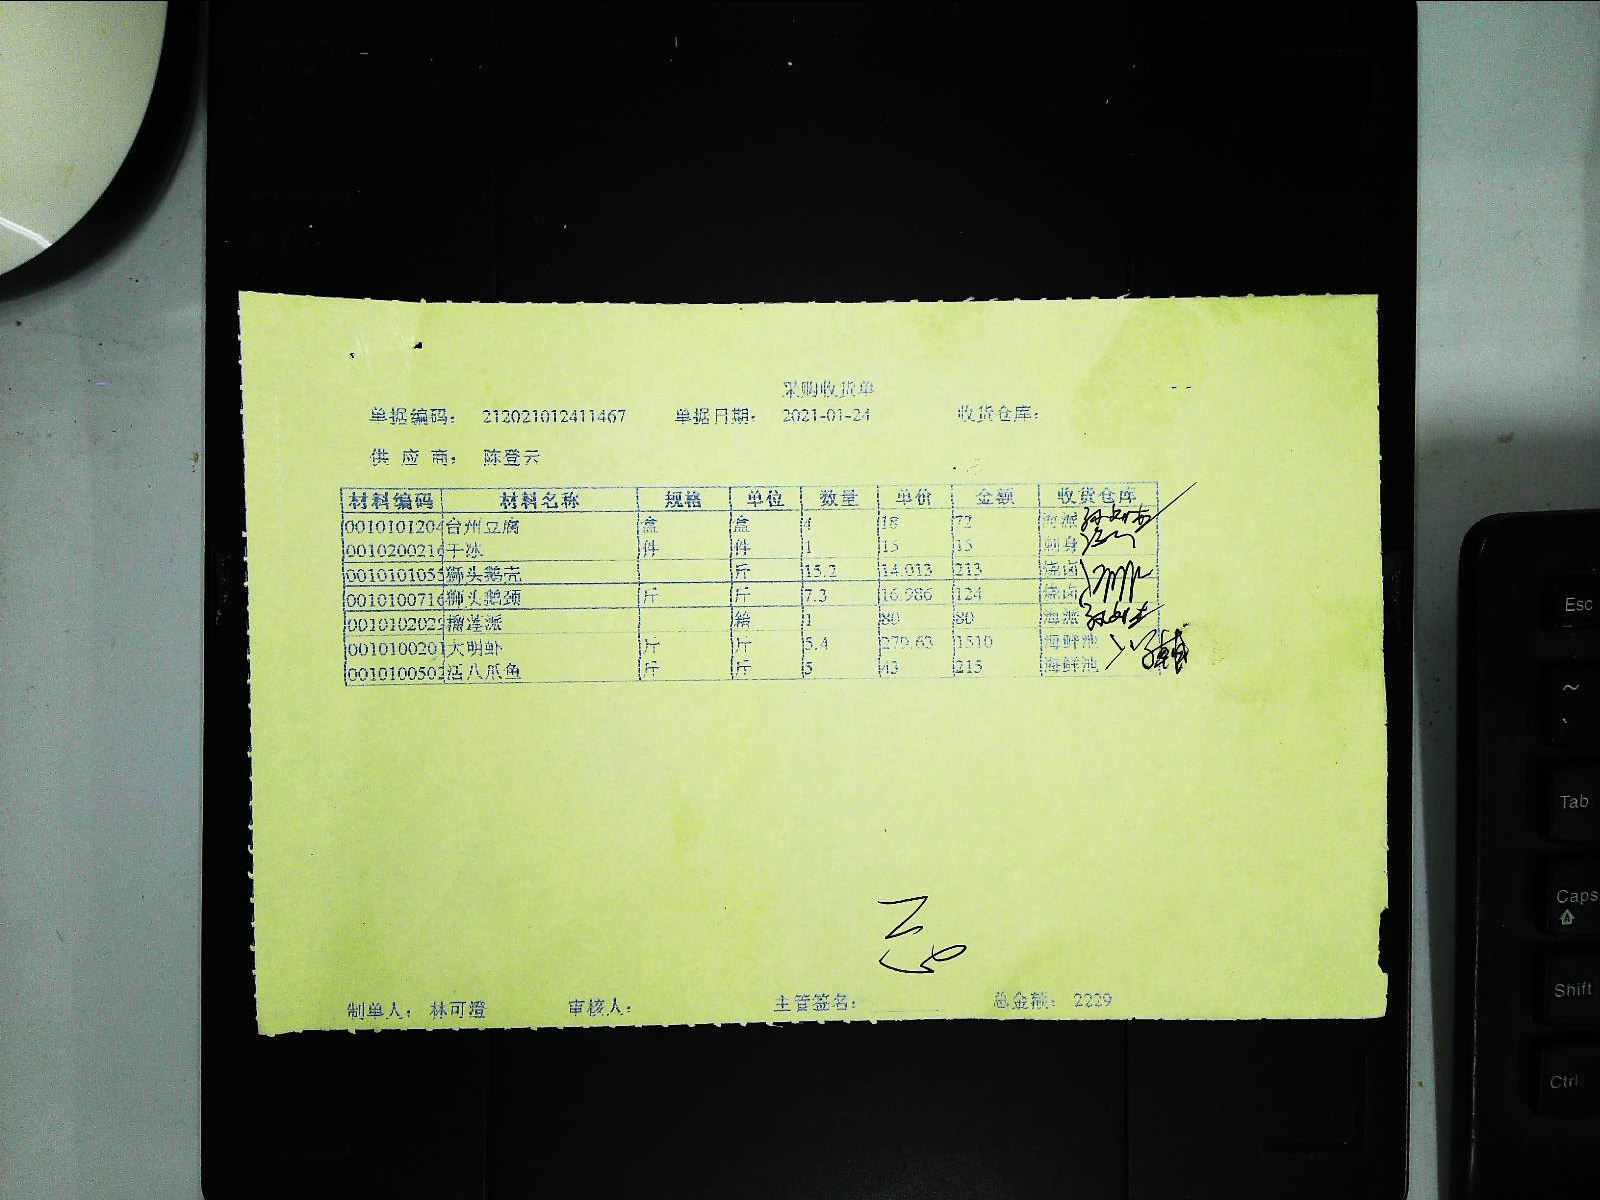 采购收货单
- -
单据编码： 212021012411467 单据日期： 2021-01-24 收货仓库：
供 应 商： 陈登云
材料编码 材料名称 规格 单位 数量 单价 金额 收货仓库
0010101204 台州豆腐 盒 盒 4 18 72 海派
0010200216 干冰 件 件 1 15 15 刺身
0010101055 狮头鹅壳 斤 15.2 14.013 213 烧卤
0010100716 狮头鹅颈 斤 斤 7.3 16.986 124 烧卤
0010102029 榴莲派 1 80 80 海派
0010100201 大明虾 斤 斤 5.4 279.63 1510 海鲜池
0010100502 活八爪鱼 斤 斤 5 43 215 海鲜池
制单人： 林可澄 审核人： 主管签名： 总金额： 2229
Esc
~
`
Tab
Caps
A
Shift
Ctrl